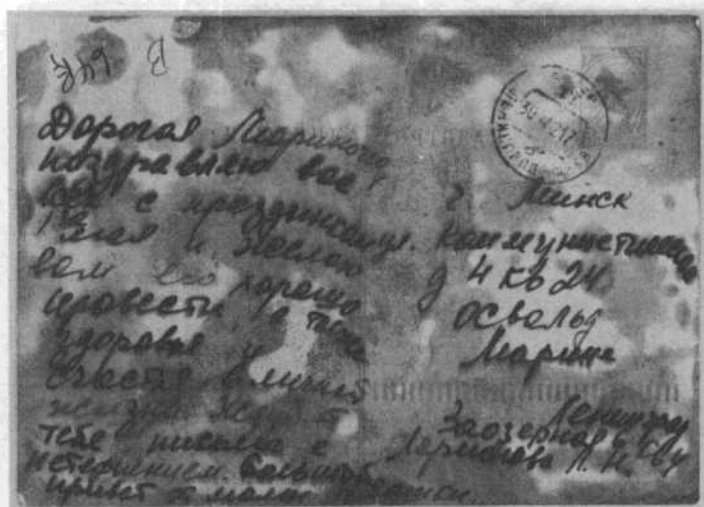 В 64К
Дорогая Мариночка
поздравляю вас
всех с праздником
1 мая и желаю
вам его хорошо
провести, а также
здоровья и
счастья в личной
жизни. Жду от
тебя письма с
нетерпением. Большой
привет от мамы
г Минск
ул. Коммунистическая
д 4 кв 24.
Освальд
Марине
Ленинград
Заозерная 6 кв
Л. Н.